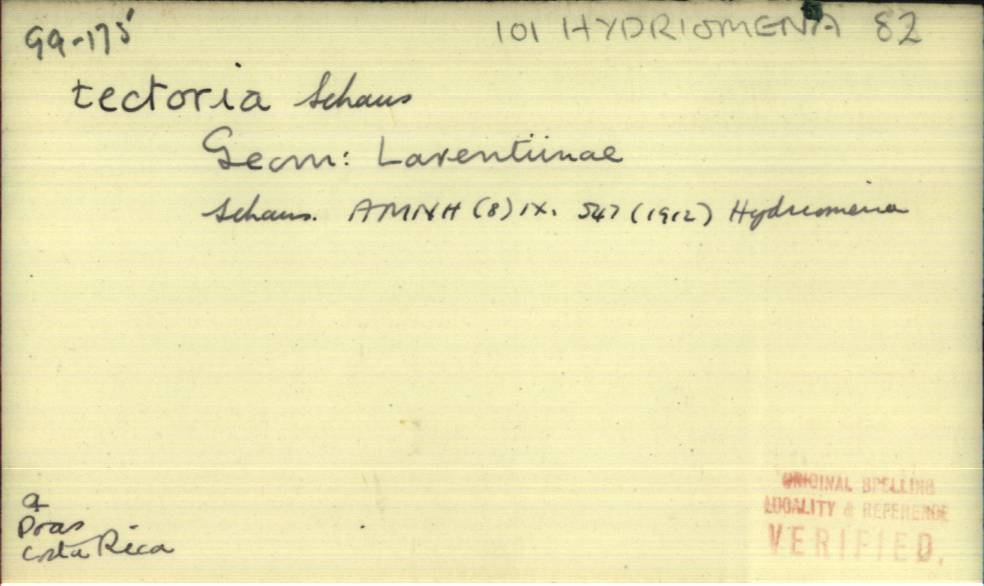 99-175
101 HYDRIOMENA 82
tectoria Schaus
Geom: Larentiinae
Schaus. AMNH (8) IX. 547 (1912) Hydriomena
♀
Poas
Costa Rica
ORIGINAL SPELLING
LOCALITY & REFERENCE
VERIFIED.